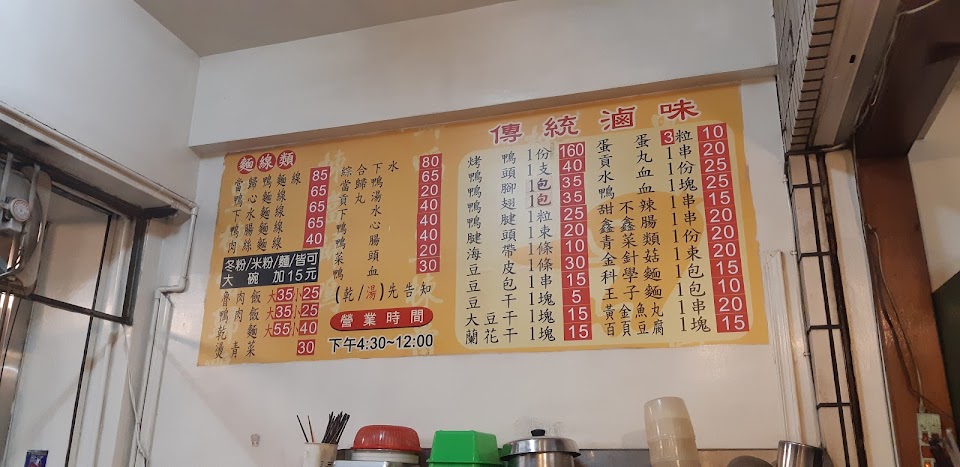 麵線類
當歸鴨麵線 85
鴨心麵線 65
下水麵線 65
鴨腸麵線 65
肉絲麵線 40
冬粉/米粉/麵/皆可
大碗 加15元
魯肉飯 大35小25
鴨肉飯 大35小25
乾麵 大55小40
燙青菜 30
綜合下水 80
當歸鴨 65
貢丸湯 20
下水 40
鴨心 40
鴨腸 40
菜頭 20
鴨血 30
(乾/湯)先告知
營業時間
下午4:30~12:00
傳統滷味
烤鴨 1份 160
鴨頭 1支 40
鴨腳 1包 35
鴨翅 1包 35
鴨腱 1粒 25
腱頭 1束 20
海帶 1條 10
豆皮 1條 30
豆包 1串 15
豆干 1塊 5
大豆干 1塊 15
蘭花干 1塊 15
蛋 3粒 10
貢丸 1串 20
水血 1份 25
鴨血 1塊 25
甜不辣 1串 15
鑫鑫腸 1串 20
青菜類 1份 20
金針菇 1束 20
科學麵 1包 15
王子麵 1包 10
魚 1串 20
百頁豆腐 1塊 15